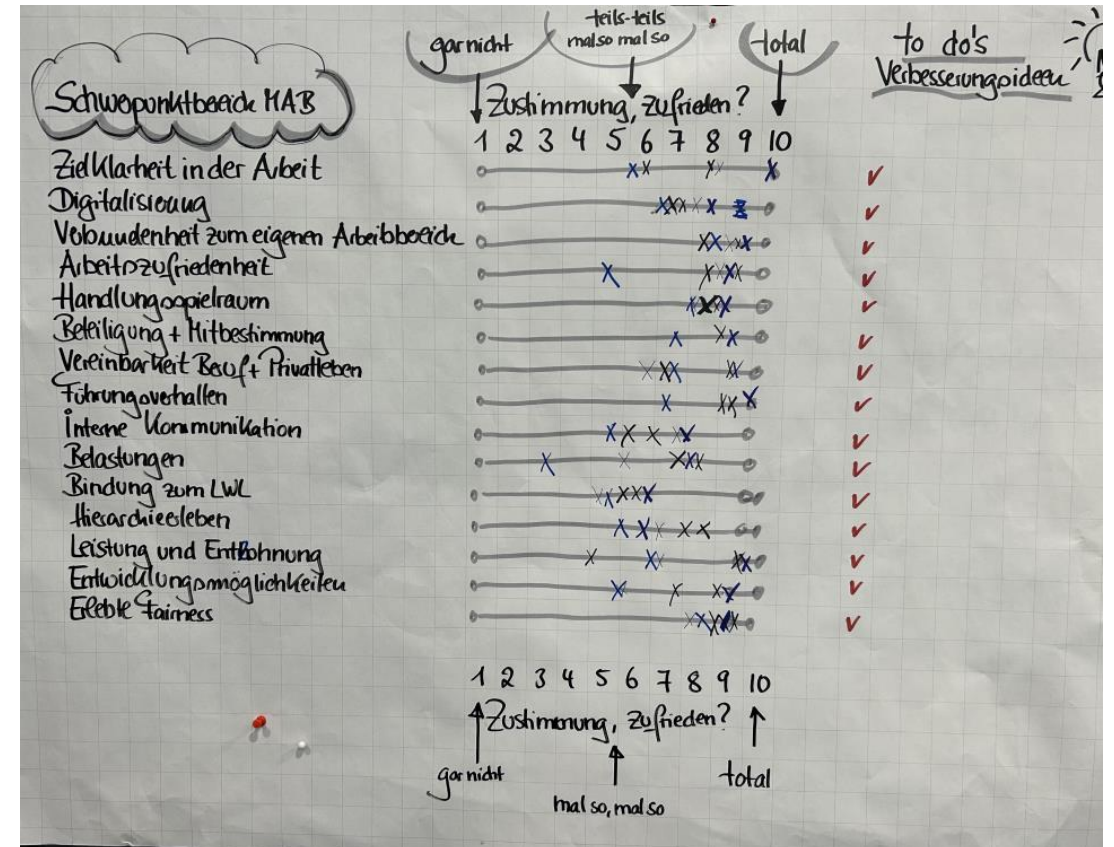 gar nicht
teils-teils
mal so mal so
total
to do's
Verbesserungsideen
Schwerpunktbereich MAB
Zustimmung, zufrieden?
1 2 3 4 5 6 7 8 9 10
Zielklarheit in der Arbeit
Digitalisierung
Verbundenheit zum eigenen Arbeitsbereich
Arbeitszufriedenheit
Handlungsspielraum
Beteiligung + Mitbestimmung
Vereinbarkeit Beruf + Privatleben
Führungsverhalten
Interne Kommunikation
Belastungen
Bindung zum LWL
Hierarchieerleben
Leistung und Entlohnung
Entwicklungsmöglichkeiten
Erlebte Fairness
1 2 3 4 5 6 7 8 9 10
Zustimmung, zufrieden?
gar nicht
total
mal so, mal so